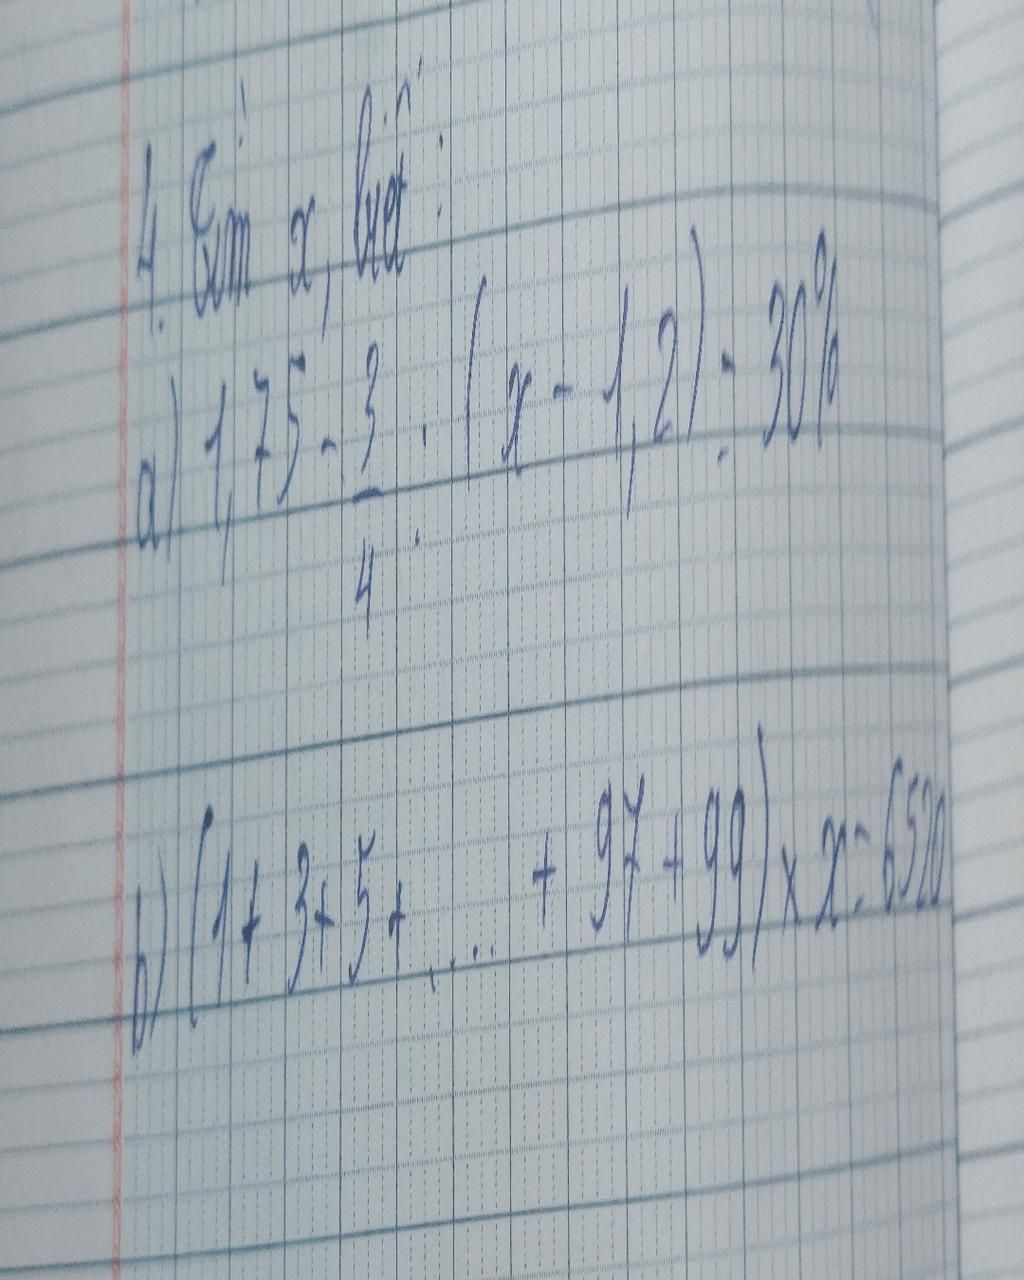 4. Tìm x, biết:
a) 1,75 - 3/4 : (x - 1,2) = 30%
b) (1 + 3 + 5 + ... + 97 + 99) x x = 6520